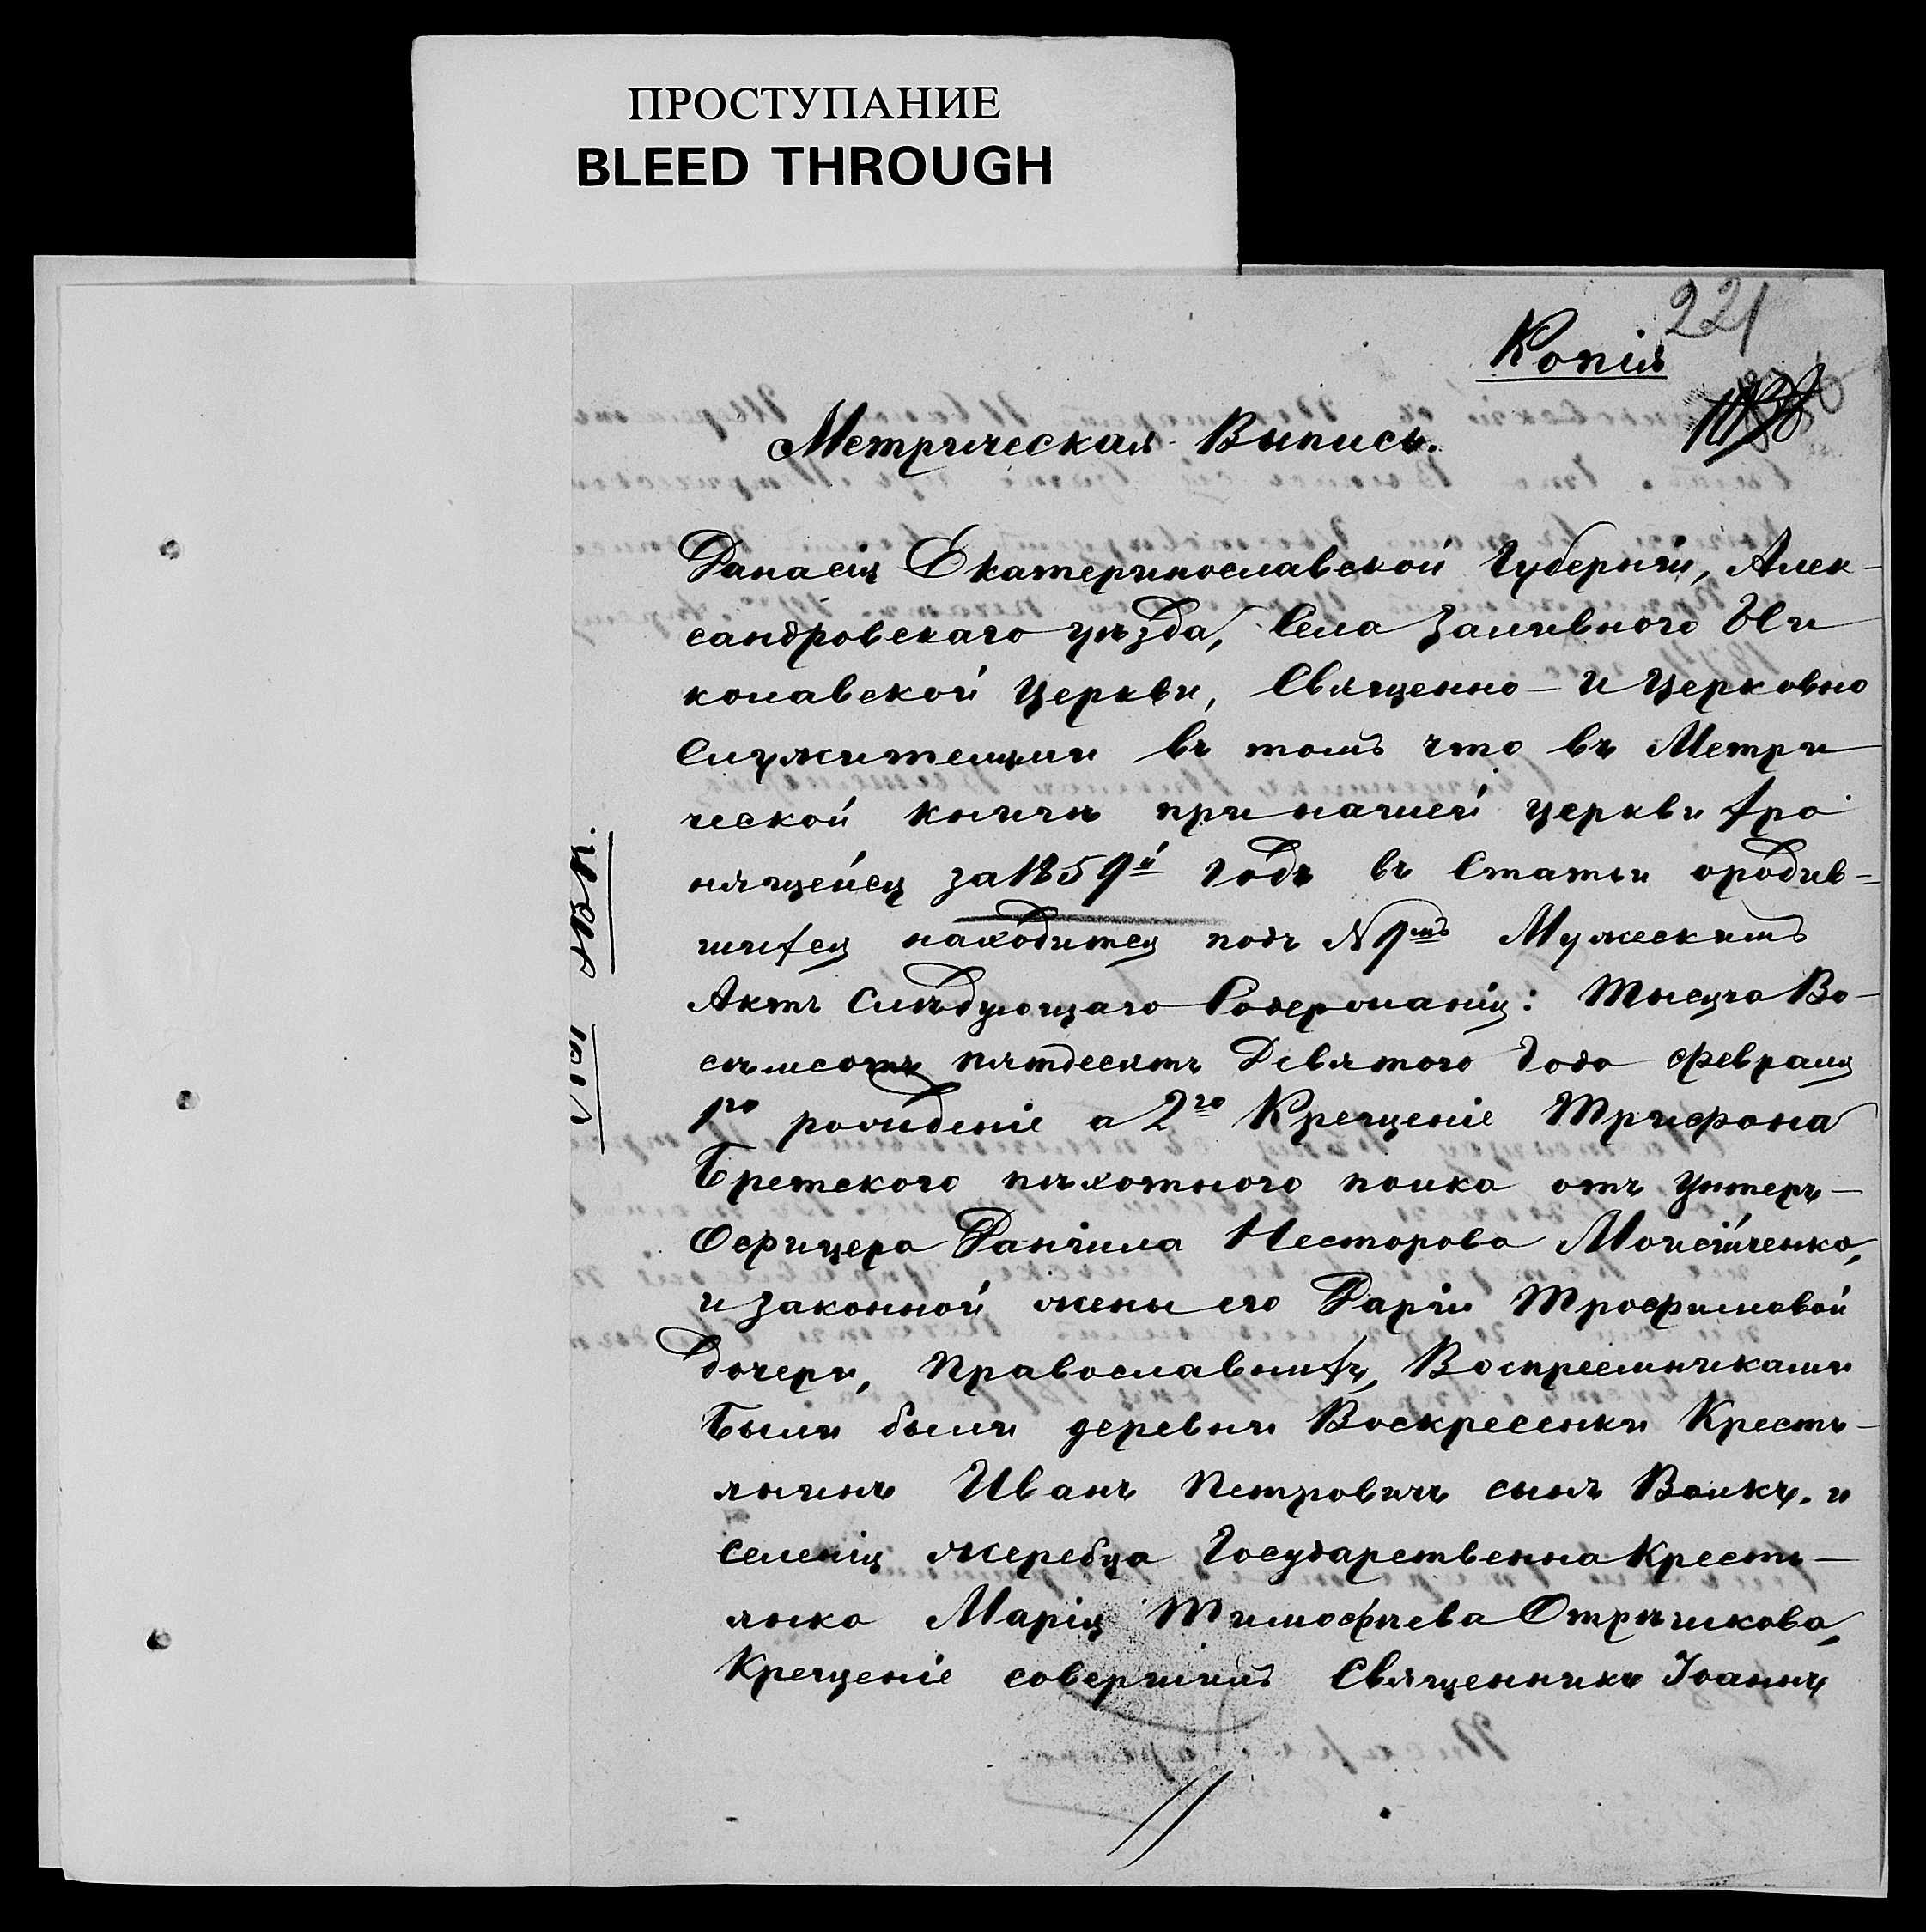 ПРОСТУПАНИЕ
BLEED THROUGH
221
Копія
Метрическая Выпись.
Данасія Екатеринославской Губерніи, Алек-
сандровскаго уѣзда, Села Заливного Ни
колавской Церкви, Священно-и Церковно
Служителями въ томъ что въ Метри
ческой книги при нашей церкви хро
нящейся за 1859й Годъ въ Статьи ородив=
шихся находится подъ №9мъ Мужескимъ
Актъ Слѣдующаго Содержанія: Тысуча Во-
съмсотъ пятдесятъ Девятого Года февраля
1го рождение а 2го Крещеніе Трифона
Бретского пѣхотного полка отъ Унтеръ-
Офицера Даніила Несторова Моисѣенко,
и законной жены его Даріи Трофимовой
дочери, Православныхъ, Воспреемниками
Были были деревни Воскресенки Кресть-
янинъ Иванъ Петровичъ сынъ Волкъ. и
Селенія жеребца Государственна Кресть-
янка Марія Тимофѣева Отрѣшкова,
Крещеніе совершилъ Священникъ Іоаннъ